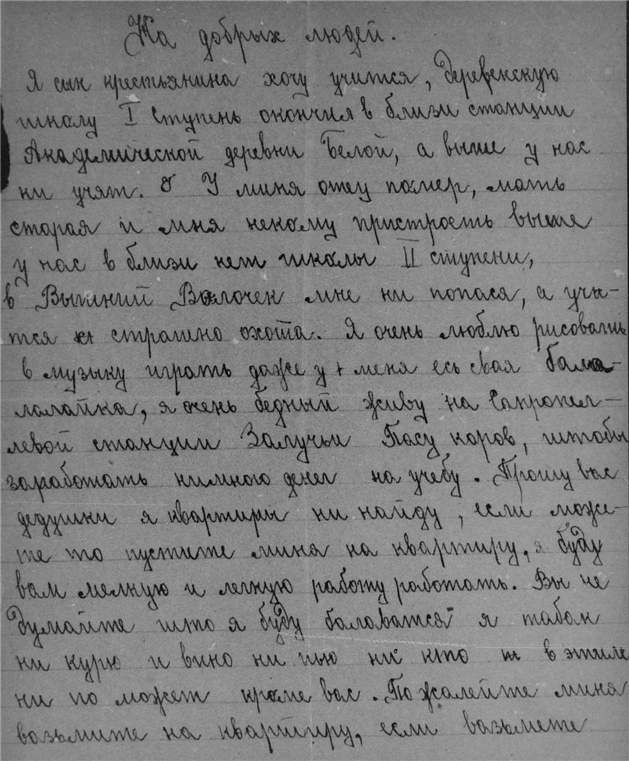 На добрых людей.
Я сын крестьянина хочу учится, деревенскую
школу I ступень окончил в близи станции
Академической деревни Белой, а выше у нас
ни учят. У миня отец памер, мать
старая и мня некому пристрость выше
у нас в близи нет школы II ступени,
в Вышний Волочек мне ни попася, а учи-
тся страшно охота. Я очень люблю рисовать
в музыку играть даже у меня есь свая бала-
лалайка, я очень бедный живу на Сапропел-
левой станции Залучьи Пасу коров, штобы
заработать нимного денег на учебу. Прошу вас
дедушки я квартиры ни найду, если може-
те то пустите миня на квартиру, я буду
вам мелкую и легкую работу работать. Вы не
думайте што я буду баловатся я табак
ни курю и вино ни пью ни кто в этим
ни по может кроме вас. Пожалейте миня
вазьмите на квартиру, если вазьмете